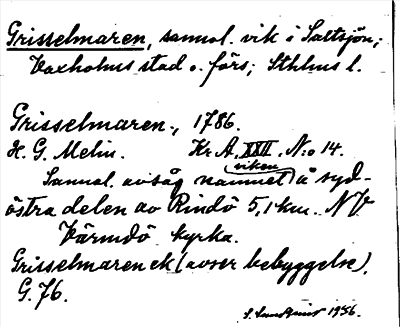 Grisselmaren, sannol. vik i Saltsjön;
Vaxholms stad o. förs; Sthlms l.
Grisselmaren, 1786.
H. G. Melin. Kr. A, XXII. N:o 14.
viken
Sannol. avsåg namnet å syd-
östra delen av Rindö 5,1 km. NV
Värmdö kyrka.
Grisselmaren ek (avser bebyggelse).
G. 76.
S. 1956.